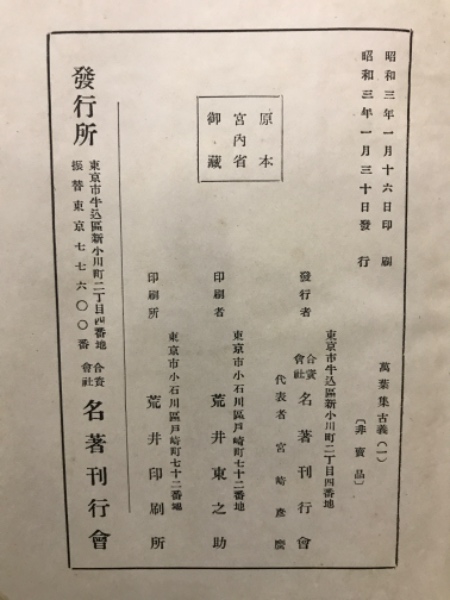 昭和三年一月十六日印刷
昭和三年一月三十日發行
萬葉集古義(一)
〔非賣品〕
原本
宮內省
御藏
東京市牛込區新小川町二丁目四番地
發行者
合資會社
名著刊行會
代表者 宮崎彥慶
東京市小石川區戸崎町七十二番地
印刷者 荒井東之助
東京市小石川區戸崎町七十二番地
印刷所 荒井印刷所
發行所
東京市牛込區新小川町二丁目四番地
振替東京七七六〇〇番
合資會社
名著刊行會